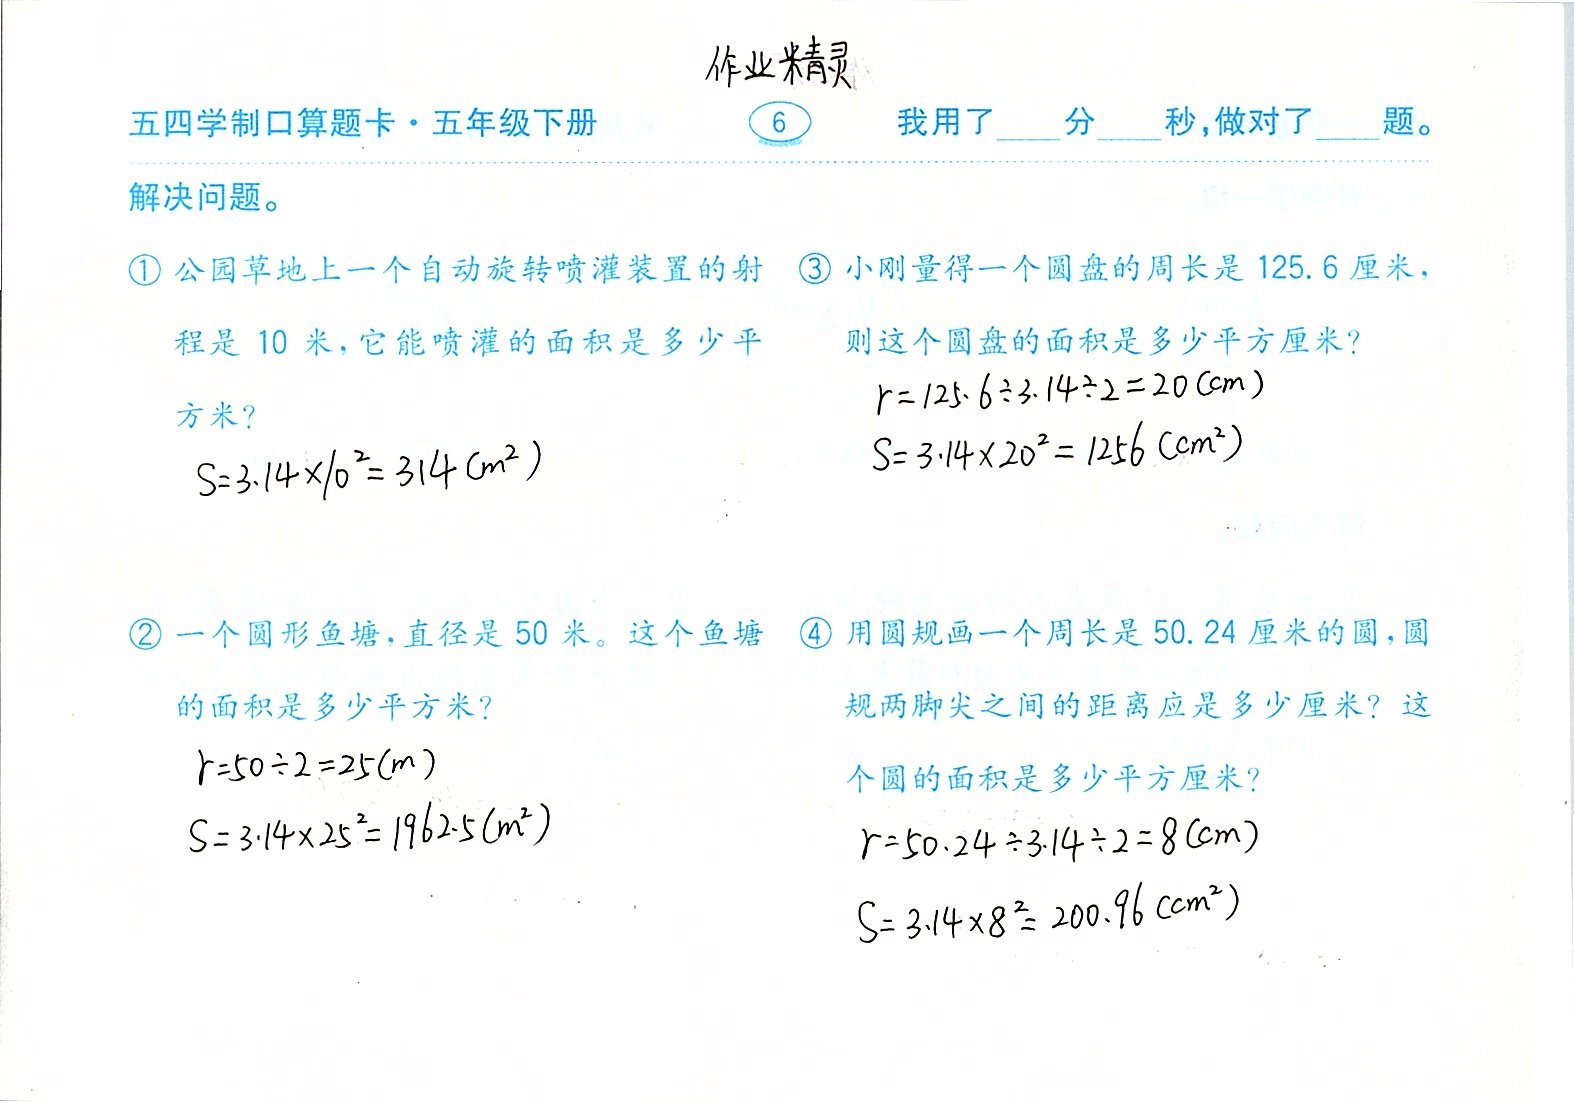 作业精灵
五四学制口算题卡·五年级下册 6 我用了____分____秒,做对了____题。
解决问题。
① 公园草地上一个自动旋转喷灌装置的射
程是 10 米,它能喷灌的面积是多少平
方米?
S=3.14×10²=314(m²)
② 一个圆形鱼塘,直径是 50 米。这个鱼塘
的面积是多少平方米?
r=50÷2=25(m)
S=3.14×25²=1962.5(m²)
③ 小刚量得一个圆盘的周长是 125.6 厘米,
则这个圆盘的面积是多少平方厘米?
r=125.6÷3.14÷2=20(cm)
S=3.14×20²=1256(cm²)
④ 用圆规画一个周长是 50.24 厘米的圆,圆
规两脚尖之间的距离应是多少厘米? 这
个圆的面积是多少平方厘米?
r=50.24÷3.14÷2=8(cm)
S=3.14×8²=200.96(cm²)